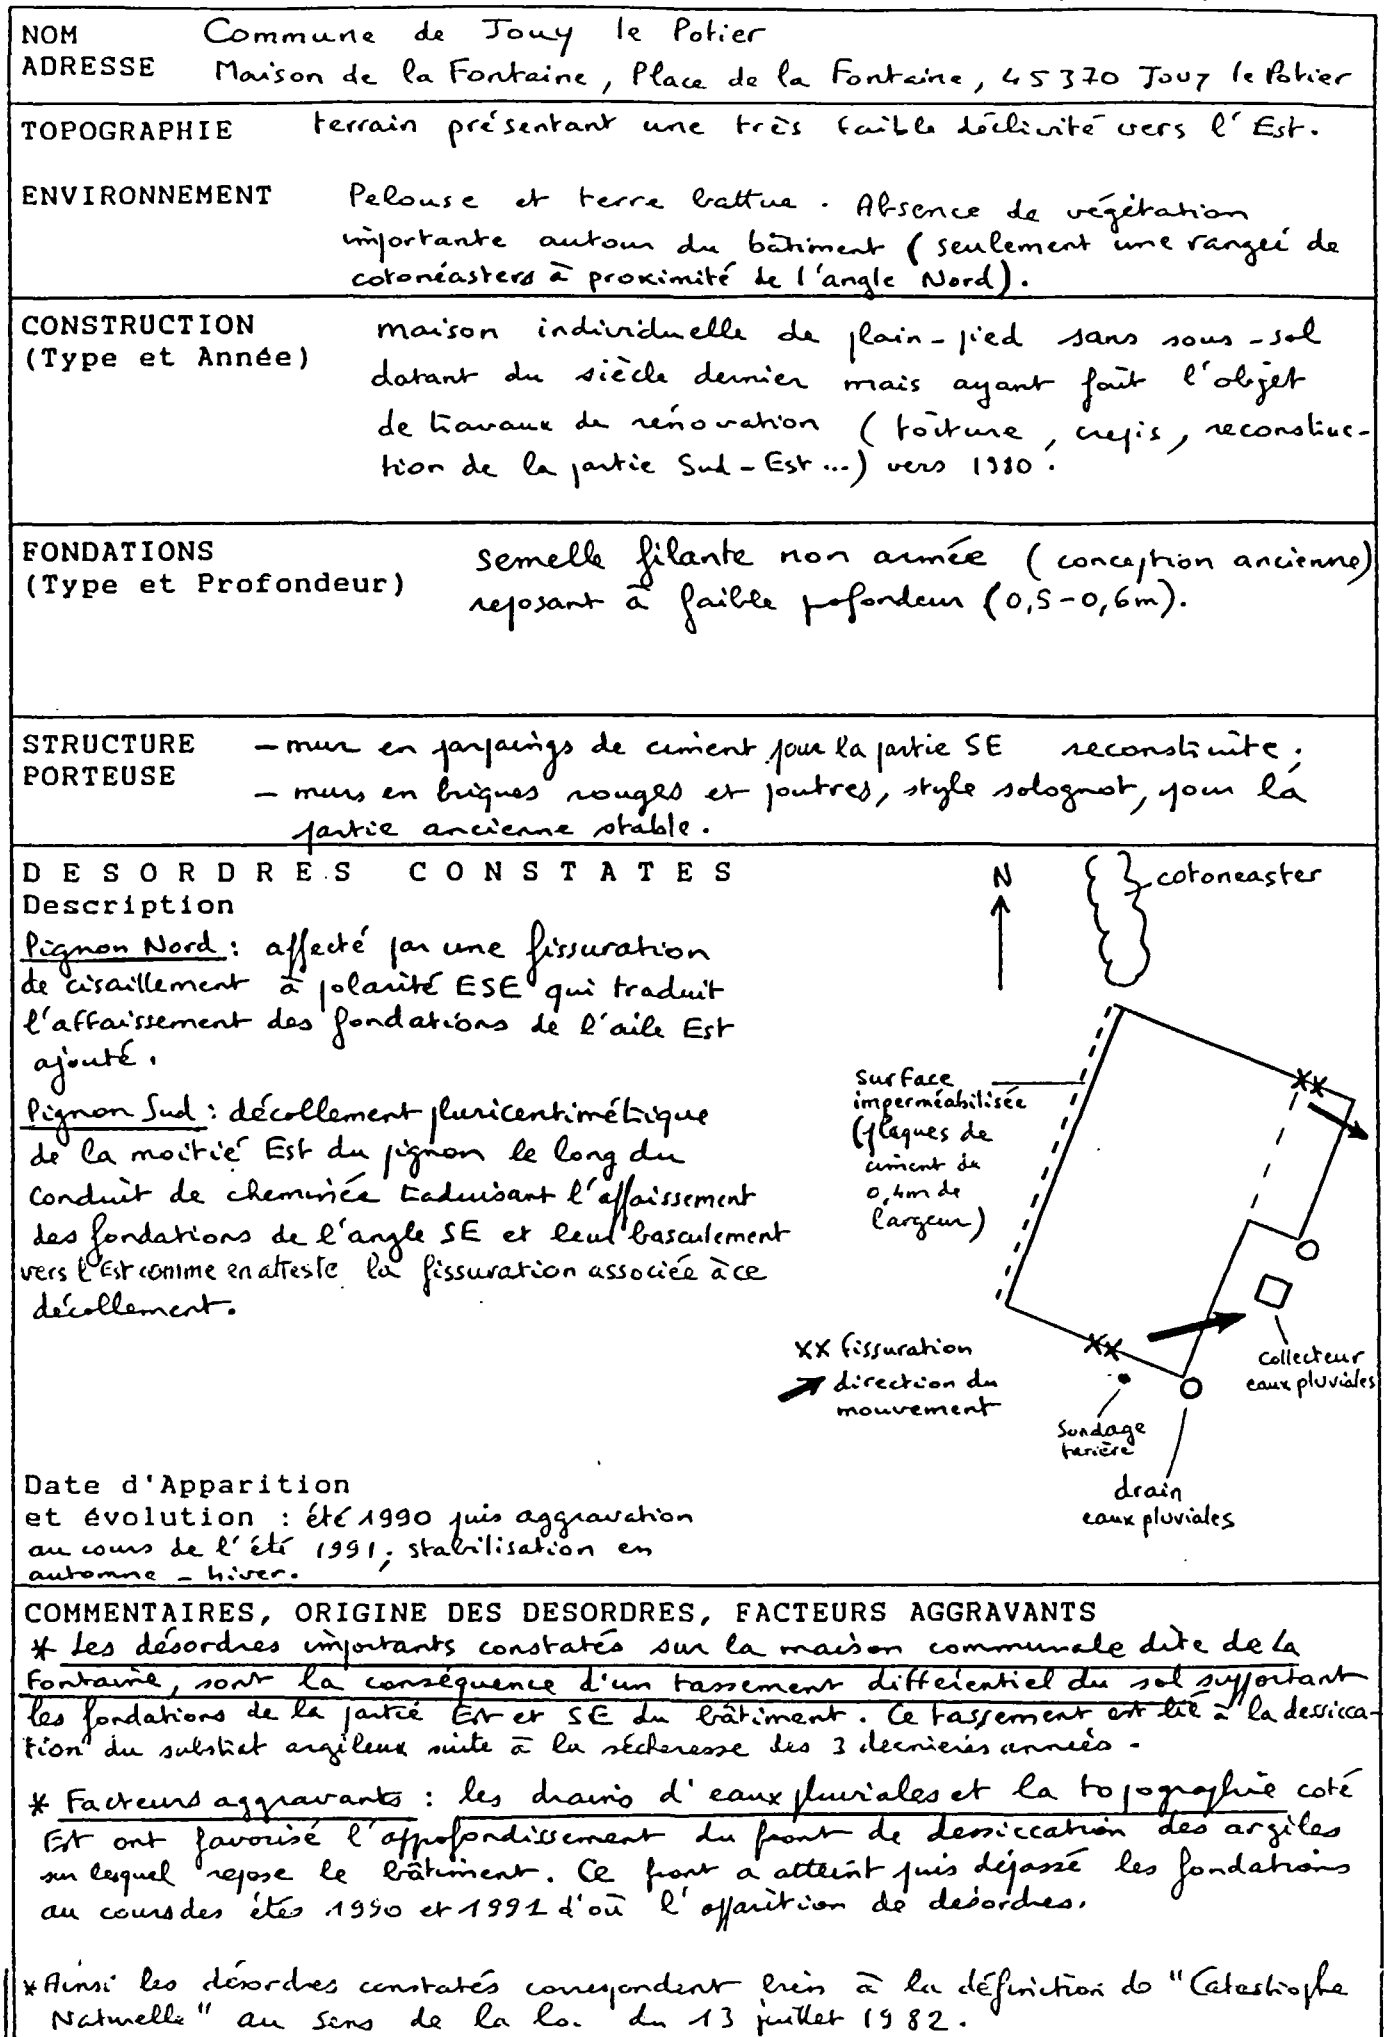 NOM Commune de Jouy le Potier
ADRESSE Maison de la Fontaine, Place de la Fontaine, 45370 Jouy le Potier
TOPOGRAPHIE terrain présentant une très faible déclivité vers l'Est.
ENVIRONNEMENT Pelouse et terre battue. Absence de végétation
importante autour du bâtiment (seulement une rangée de
cotonéasters à proximité de l'angle Nord).
CONSTRUCTION maison individuelle de plain-pied sans sous-sol
(Type et Année) datant du siècle dernier mais ayant fait l'objet
de travaux de rénovation (toiture, crépis, reconstruc-
tion de la partie Sud-Est...) vers 1980.
FONDATIONS semelle filante non armée (conception ancienne)
(Type et Profondeur) reposant à faible profondeur (0,5-0,6m).
STRUCTURE - mur en parpaings de ciment pour la partie SE reconstruite;
PORTEUSE - murs en briques rouges et poutres, style solognot, pour la
partie ancienne stable.
DESORDRES CONSTATES
Description
Pignon Nord : affecté par une fissuration
de cisaillement à polarité ESE qui traduit
l'affaissement des fondations de l'aile Est
ajouté.
Pignon Sud : décollement pluricentimétrique
de la moitié Est du pignon le long du
conduit de cheminée traduisant l'affaissement
des fondations de l'angle SE et leur basculement
vers l'Est comme en atteste la fissuration associée à ce
décollement.
N
cotoneaster
surface
imperméabilisée
(plaques de
ciment de
0,4m de
largeur)
XX fissuration
direction du
mouvement
Sondage
tarière
collecteur
eaux pluviales
drain
eaux pluviales
Date d'Apparition
et évolution : été 1990 puis aggravation
au cours de l'été 1991; stabilisation en
automne - hiver.
COMMENTAIRES, ORIGINE DES DESORDRES, FACTEURS AGGRAVANTS
* Les désordres importants constatés sur la maison communale dite de la
Fontaine, sont la conséquence d'un tassement différentiel du sol supportant
les fondations de la partie Est et SE du bâtiment. Ce tassement est lié à la dessicca-
tion du substrat argileux suite à la sécheresse des 3 dernières années.
* Facteurs aggravants : les drains d'eaux pluviales et la topographie coté
Est ont favorisé l'approfondissement du front de dessiccation des argiles
sur lesquel repose le bâtiment. Ce front a atteint puis dépassé les fondations
au cours des étés 1990 et 1991 d'où l'apparition de désordres.
* Ainsi les désordres constatés correspondent bien à la définition de "Catastrophe
Naturelle" au sens de la loi du 13 juillet 1982.